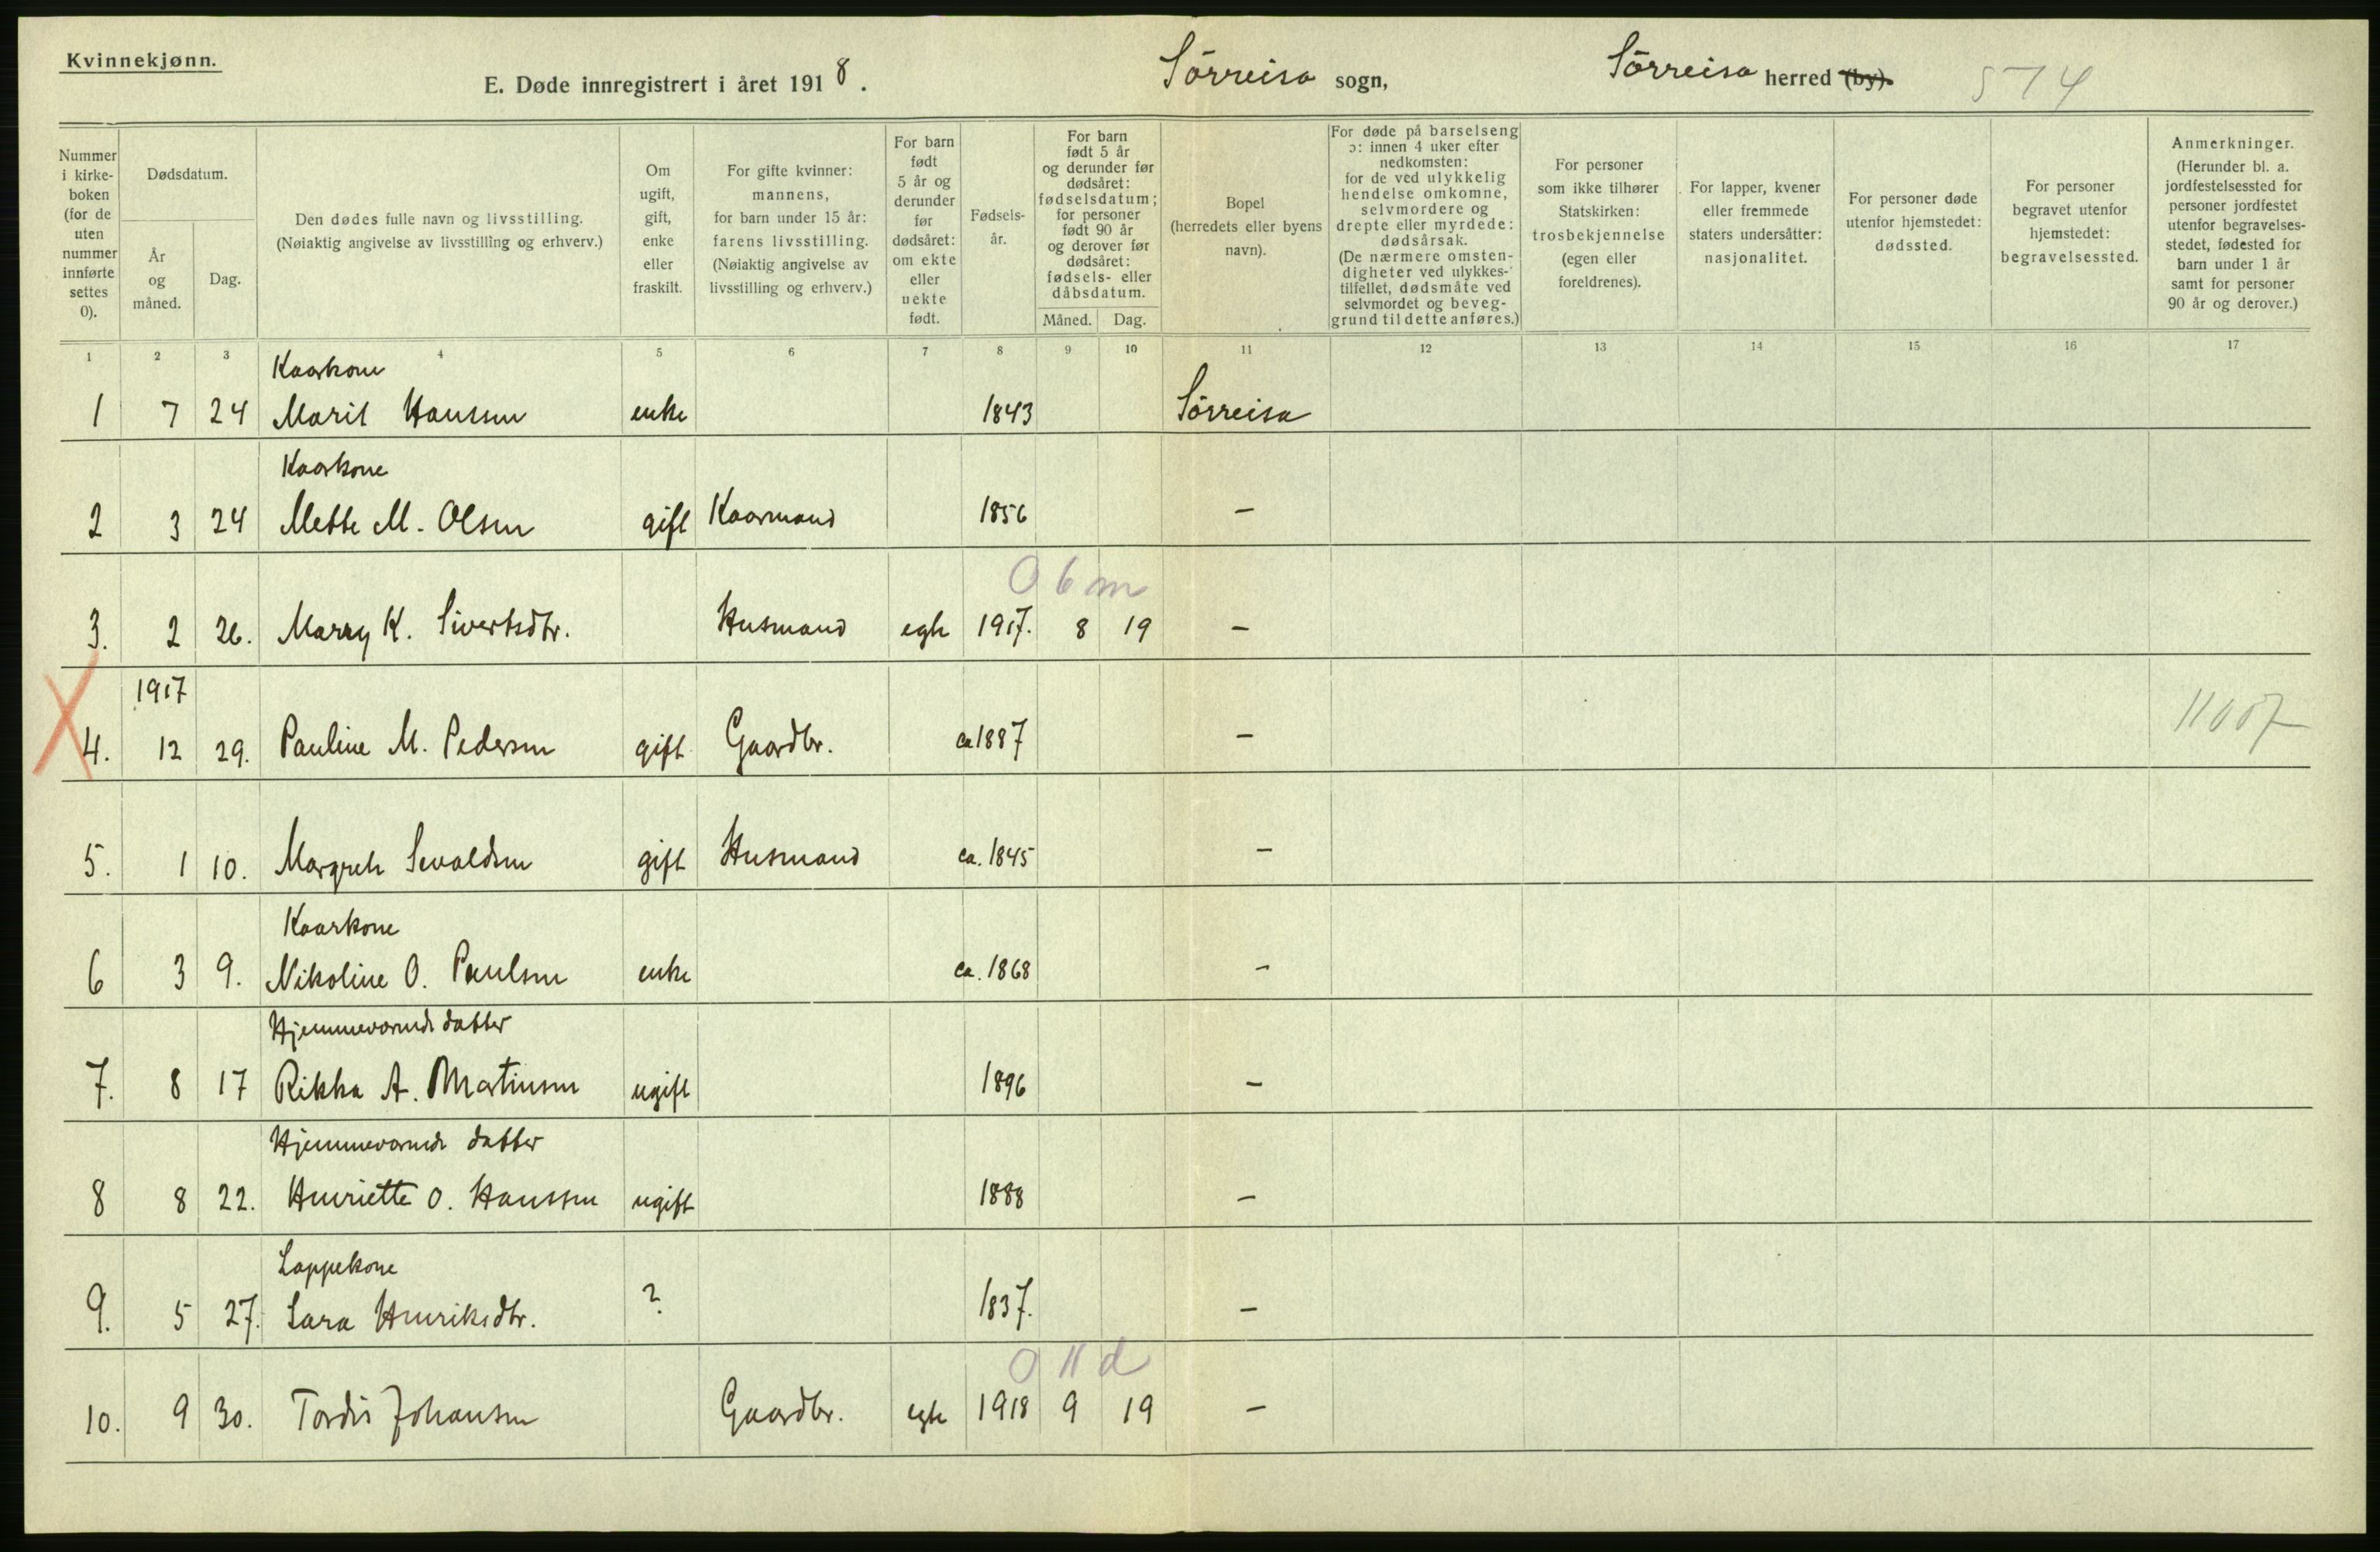 Kvinnekjønn.
E. Døde innregistrert i året 1918. Sørreisa sogn, Sørreisa herred (by). 574
Nummer i kirke-boken (for de uten nummer innførte settes 0).
Dødsdatum.
År og måned.
Dag.
Den dødes fulle navn og livsstilling.
(Nøiaktig angivelse av livsstilling og erhverv.)
Om ugift, gift, enke eller fraskilt.
For gifte kvinner: mannens, for barn under 15 år: farens livsstilling. (Nøiaktig angivelse av livsstilling og erhverv.)
For barn født 5 år og derunder før dødsåret: om ekte eller uekte født.
Fødsels-år.
For barn født 5 år og derunder før dødsåret: fødselsdatum; for personer født 90 år og derover før dødsåret: fødsels- eller dåbsdatum.
Måned. Dag.
Bopel (herredets eller byens navn).
For døde på barselseng ɔ: innen 4 uker efter nedkomsten: for de ved ulykkelig hendelse omkomne, selvmordere og drepte eller myrdede: dødsårsak. (De nærmere omsten-digheter ved ulykkes-tilfellet, dødsmåte ved selvmordet og beveg-grund til dette anføres.)
For personer som ikke tilhører Statskirken: trosbekjennelse (egen eller foreldrenes).
For lapper, kvener eller fremmede staters undersåtter: nasjonalitet.
For personer døde utenfor hjemstedet: dødssted.
For personer begravet utenfor hjemstedet: begravelsessted.
Anmerkninger. (Herunder bl. a. jordfestelsessted for personer jordfestet utenfor begravelses-stedet, fødested for barn under 1 år samt for personer 90 år og derover.)
1 2 3 4 5 6 7 8 9 10 11 12 13 14 15 16 17
Kaarkone
1 7 24 Marit Hanssen enke 1843 Sørreisa
Kaarkone
2 3 24 Mette M. Olsen gift Kaarmand 1856 –
0 6 m
3. 2 26. Marry K. Sivertsdtr. Husmand egte 1917. 8 19 –
1917
4. 12 29. Pauline M. Pedersen gift Gaardbr. ca 1887 – 11007
5. 1 10. Margrete Sevaldsen gift Husmand ca. 1845 –
Kaarkone
6 3 9. Nikoline O. Paulsen enke ca. 1868 –
Hjemmeværende datter
7. 8 17 Rikka A. Martinsen ugift 1896 –
Hjemmeværende datter
8 8 22. Henriette O. Hanssen ugift 1888 –
Lappekone
9. 5 27. Sara Henriksdtr. ? 1837. –
0 11 d
10. 9 30. Tordis Johansen Gaardbr. egte 1918 9 19 –